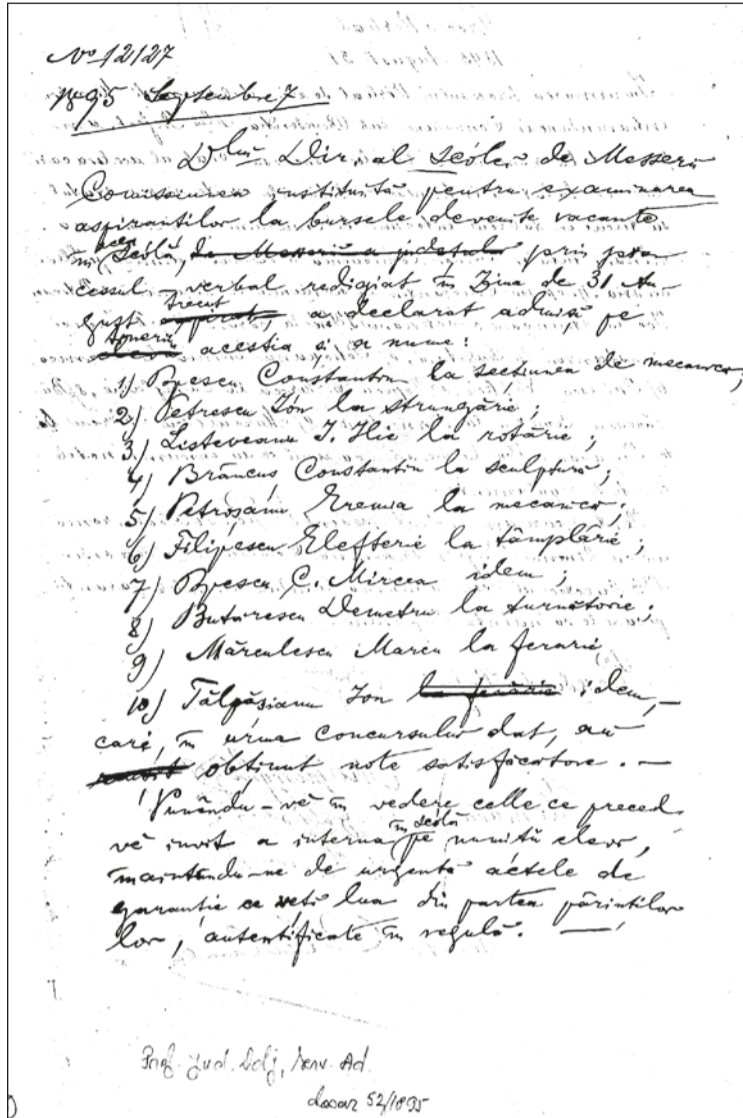 No 12127
1895 Septembre 7
Dlui Dir. al Scólei de Meserii
Comisiunea instituită pentru examinarea
aspirantilor la bursele devenite vacante
în acea Scólă, de Meserii a judetului prin pro-
cessul-verbal redigiat în Ziua de 31 Au-
gust expirat, trecut a declarat admisi pe
elevii tineri acestia si a nume:
1) Popescu Constantin la sectiunea de mecanică,
2) Petrescu Ión la strungărie;
3) Listeveanu I. Ilie la rotărie;
4) Brâncus Constantin la sculptură;
5) Petroșanu Eremia la mecanică;
6) Filipescu Elefterie la tâmplărie;
7) Popescu C. Mircea idem;
8) Butărescu Demetru la turnătorie;
9) Mărculescu Marcu la ferarie,
10) Tălpășianu Ion la ferărie idem,—
cari, în urma concursului dat, au
obtinut note satisfăcătore. —
Punêndu-vě în vedere celle ce preced
vě invit a interna în scólă pe numitii elevi,
înaintându-ne de urgentă actele de
garantie ce veti lua din partea părintilor
lor, autentificate în regulă. —
Pref. Jud. Dolj, Serv. Ad.
dosar 52/1895